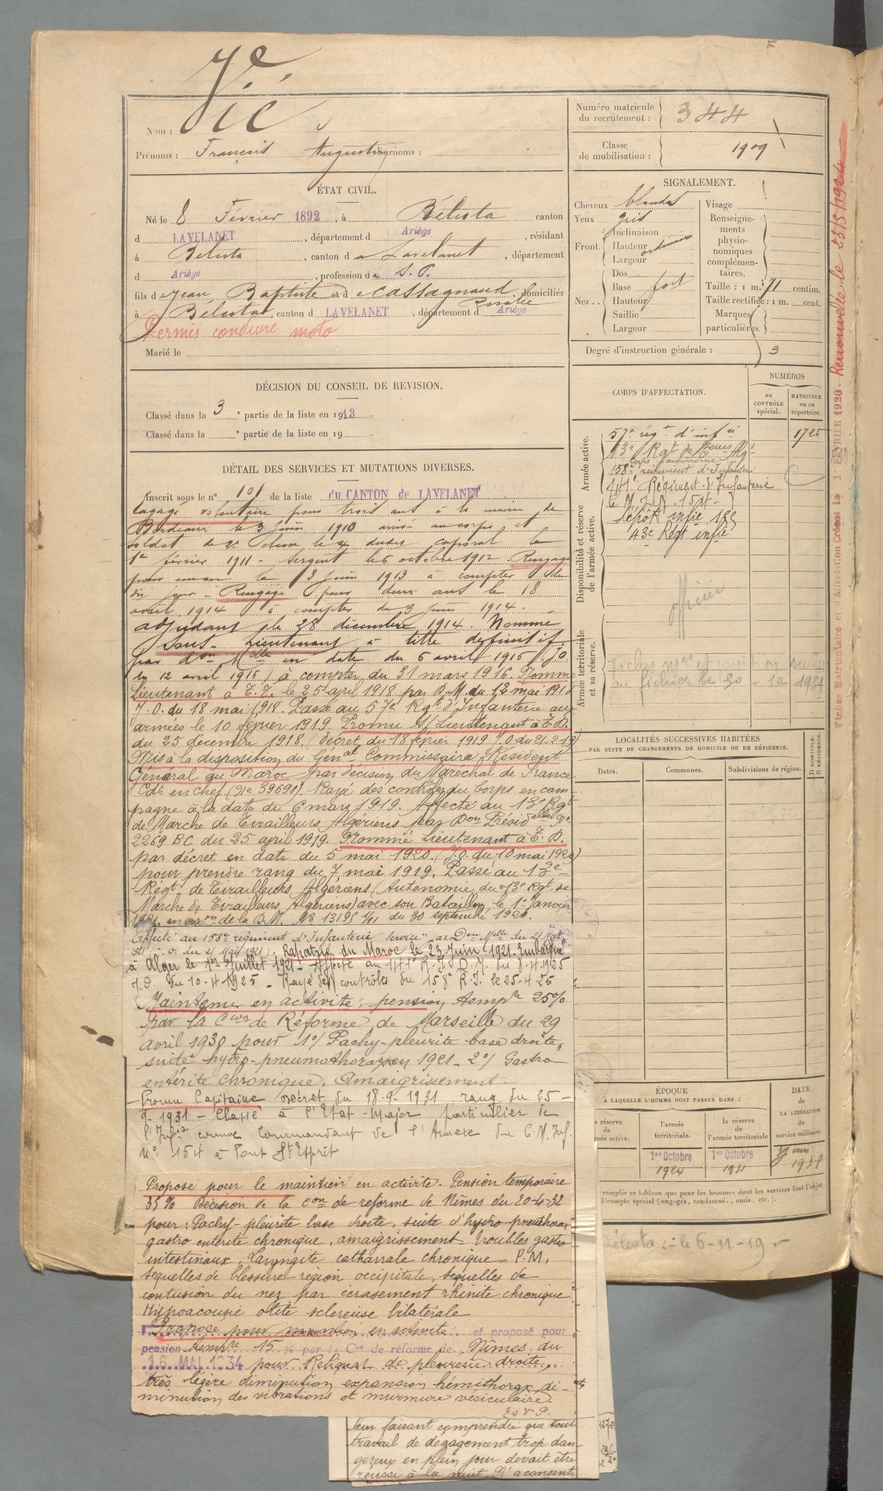 Nom : Vié
Prénoms : François Augustin Surnoms :
Numéro matricule du recrutement : 344
Classe de mobilisation : 1909
ÉTAT CIVIL.
Né le 8 Février 1892, à Bélesta canton
d LAVELANET, département d Ariège, résidant
à Bélesta, canton d Lavelanet, département
d Ariège, profession de S. P.
fils de Jean Baptiste et de Cassagnaud Rosalie domiciliés
à Bélesta, canton d LAVELANET, département d Ariège
Permis conduire moto
Marié le
SIGNALEMENT.
Cheveux blonds
Yeux gris
Front. Inclinaison
Hauteur ordinaire
Largeur
Nez. Dos
Base fort
Hauteur
Saillie
Largeur
Visage
Renseignements physionomiques complémentaires.
Taille : 1 m. 71 centim.
Taille rectifiée : 1 m. cent.
Marques particulières
Degré d'instruction générale : 3
DÉCISION DU CONSEIL DE REVISION.
Classé dans la 3e partie de la liste en 1913
Classé dans la e partie de la liste en 19
DÉTAIL DES SERVICES ET MUTATIONS DIVERSES.
Inscrit sous le n° 101 de la liste du CANTON de LAVELANET
Engagé volontaire pour trois ans à la mairie de
Bordeaux le 3 juin 1910 arrivé au corps et
soldat de 2e classe le 4 dudit caporal le
1er février 1911 - Sergent le 6 octobre 1912 Rengagé
pour un an le 2 juin 1913 à compter
du jour - Rengagé pour deux ans le 18
avril 1914 à compter du 3 juin 1914.
adjudant le 28 décembre 1914. Nommé
Sous-Lieutenant à titre définitif
par don Mlle en date du 6 avril 1916 (JO
du 12 avril 1916) à compter du 31 mars 1916. Nommé
Lieutenant à T.T. le 25 avril 1918 par D.M. du 12 mai 1918
J.O. du 18 mai 1918. Passé au 57e Rgt d'Infanterie aux
armées le 10 février 1919. Promu Lieutenant à T.D.
du 25 décembre 1918. Décret du 18 février 1919 J.O. du 21-2-19
Mis à la disposition du Génal Commissaire Résident
Général au Maroc par décision du Maréchal de France
Cdt en chef (N° 39691). Rayé des contrôles du Corps en cam-
pagne à la date du 6 mars 1919. Affecté au 13e Rgt
de Marche de Tirailleurs Algériens par Don Présidlle N°
2269 BC du 25 avril 1919. Nommé Lieutenant à T.D.
par décret en date du 5 mai 1920 (JO. du 10 mai 1920)
pour prendre rang du 7 mai 1919. Passé au 13e
Régt de Tirailleurs Algériens (Autonomie du 13e Rgt de
Marche de Tirailleurs Algériens) avec son Bataillon, le 1er Janvier
1921, en de la D.M. N° 13195 1/11 du 30 septembre 1920.
Affecté au 158e régiment d'Infanterie
Rapatrié du Maroc le 23 Juin 1921. Embarqué
à Alger le 1er Juillet 1921
J.O. du 10-4-1925 - Rayé des contrôles du 158 R.I. le 25-4-25
Maintenu en activité, pension tempre 25%
par la Con de Réforme de Marseille du 29
avril 1930 pour 1°/ Pachy-pleurite base droite,
suite hydro-pneumothorax en 1921 - 2°/ Gastro
entérite chronique. Amaigrissement
Promu Capitaine décret du 18-9-1931, rang du 25-
9-1931 - Classé à l'Etat-Major particulier de
l'Infie comme Commandant de l'Annexe du C.M. Inf.
N° 154 à Pont St Esprit
Proposé pour le maintien en activité. Pension temporaire
35% Décision de la Con de réforme de Nîmes du 20-4-32
pour : Pachy pleurite base droite, suite d'hydro pneuthorax
gastro entérite chronique, amaigrissement troubles gastro
intestinaux, laryngite catharrale chronique - P.M.
sequelles de blessure région occipitale, sequelles de
contusion du nez par écrasement rhinite chronique
Hypoacousie otite sclereuse bilatérale
Proposé pour maintien en activité et proposé pour
pension tempre 15 % par la Con de réforme de Nîmes du
16 MAI 1934 pour Reliquat de pleurésie droite,
très légère diminution expansion hémithorax di-
minution des vibrations et murmure vésiculaire.
leur faisant comprendre que tout
travail de dégagement trop dan-
gereux en plein jour devait être
la nuit. N'a consenti
CORPS D'AFFECTATION.
NUMÉROS
AU CONTRÔLE spécial.
MATRICULE ou au répertoire.
Armée active.
57e régt d'infie 1725
158e régiment d'Infanterie
141e Régiment d'Infanterie
C.M.I. 154
Disponibilité et réserve de l'armée active.
Dépôt infie
43e Régt infie
officier
Armée territoriale et sa réserve.
LOCALITÉS SUCCESSIVES HABITÉES
PAR SUITE DE CHANGEMENTS DE DOMICILE OU DE RÉSIDENCE.
Dates.
Communes.
Subdivisions de région.
D DOMICILE. R RÉSIDENCE.
ÉPOQUE
À LAQUELLE L'HOMME DOIT PASSER DANS :
DATE DE LA LIBÉRATION du service militaire.
l'armée territoriale.
la réserve de l'armée territoriale.
1er Octobre 1924
1er Octobre 1931
Bélesta : le 6-11-19